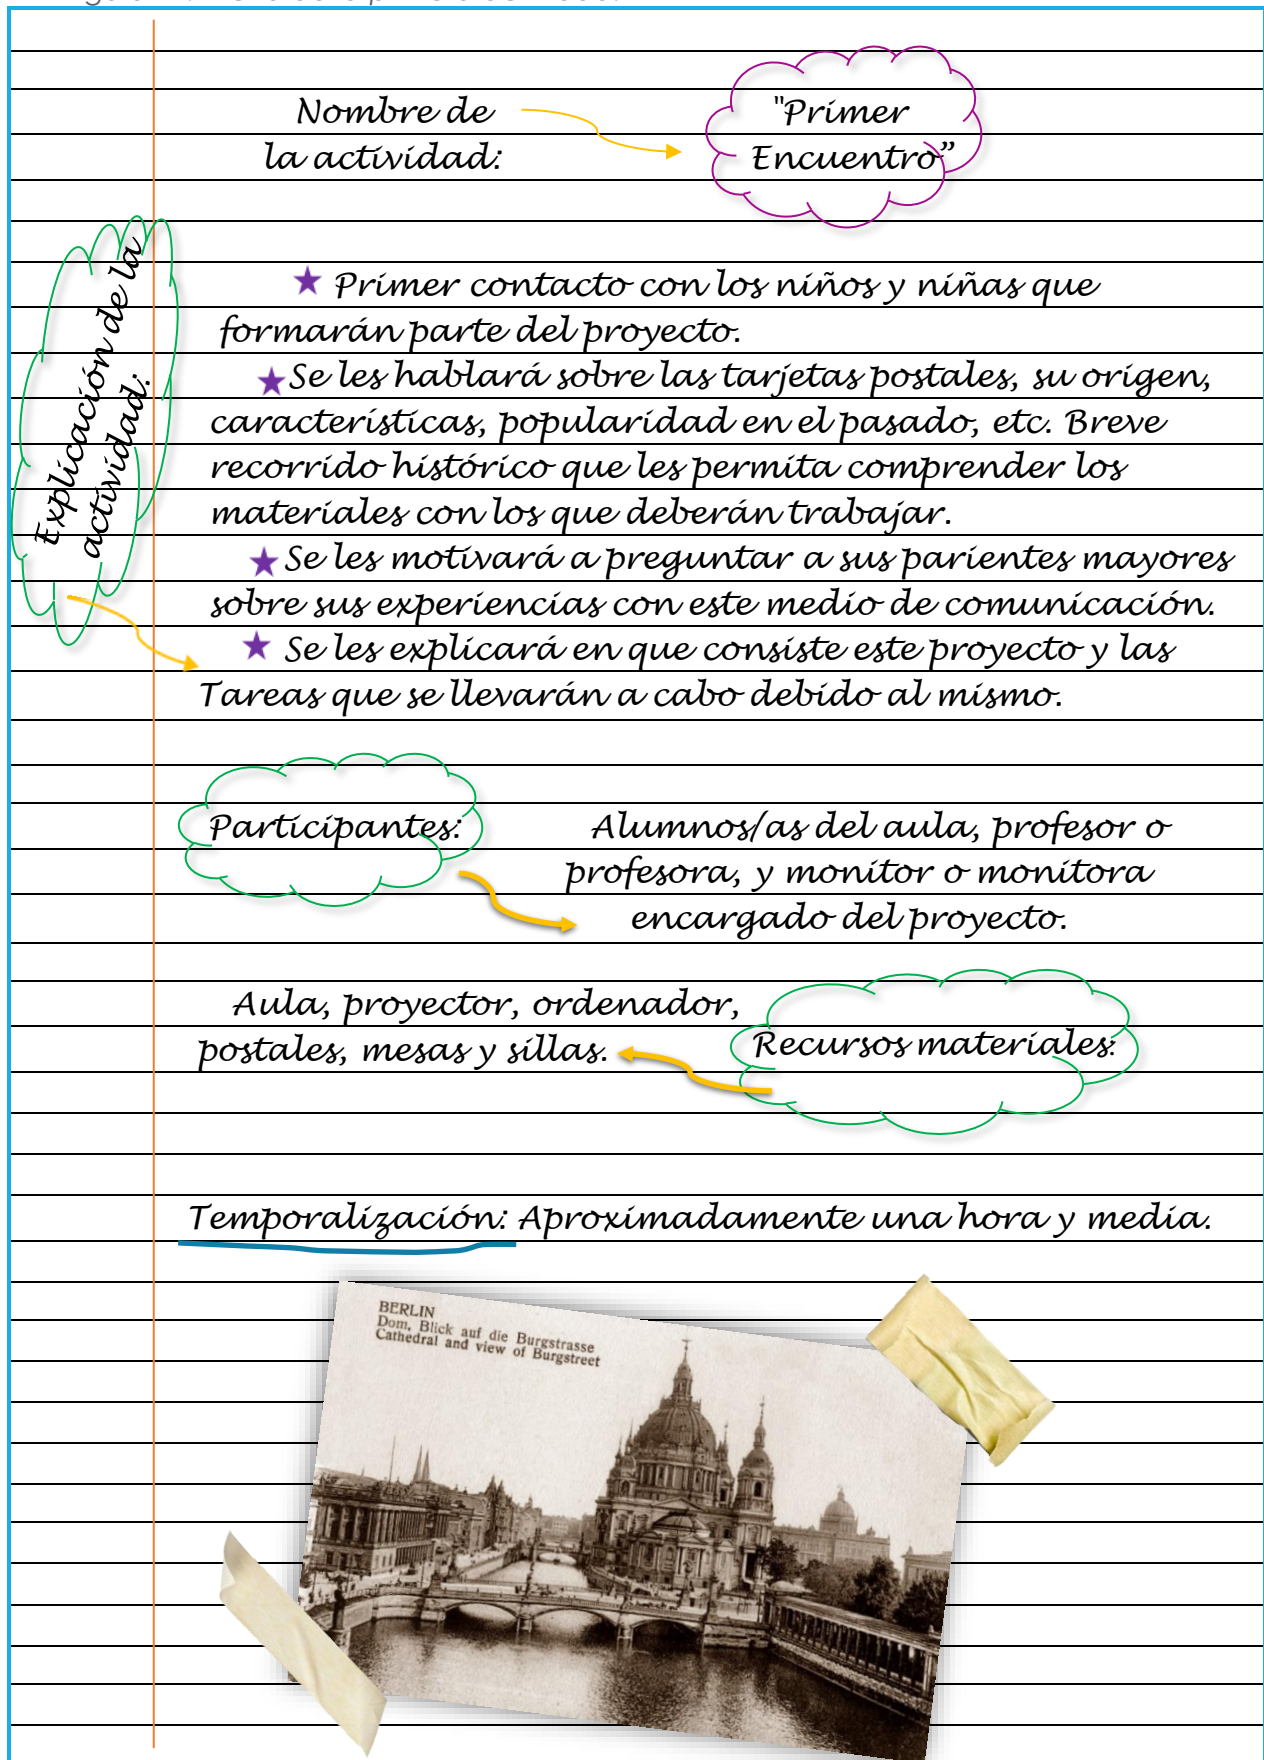 Nombre de
la actividad:
"Primer
Encuentro”
Explicación de la
actividad:
Primer contacto con los niños y niñas que
formarán parte del proyecto.
Se les hablará sobre las tarjetas postales, su origen,
características, popularidad en el pasado, etc. Breve
recorrido histórico que les permita comprender los
materiales con los que deberán trabajar.
Se les motivará a preguntar a sus parientes mayores
sobre sus experiencias con este medio de comunicación.
Se les explicará en que consiste este proyecto y las
Tareas que se llevarán a cabo debido al mismo.
Participantes:
Alumnos/as del aula, profesor o
profesora, y monitor o monitora
encargado del proyecto.
Aula, proyector, ordenador,
postales, mesas y sillas.
Recursos materiales:
Temporalización: Aproximadamente una hora y media.
BERLIN
Dom, Blick auf die Burgstrasse
Cathedral and view of Burgstreet